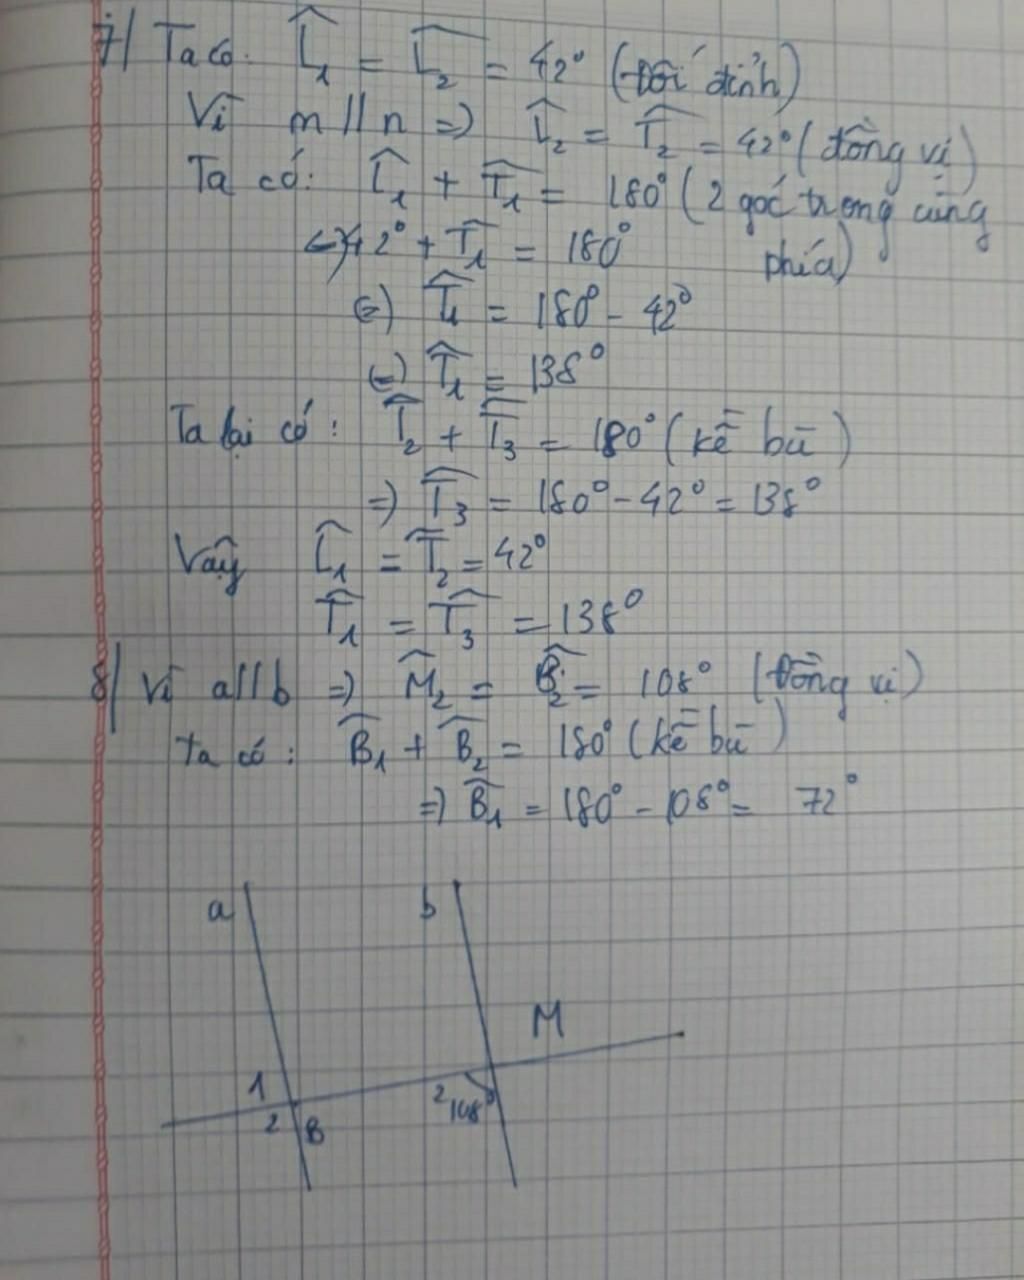 7/ Ta có: L̂₁ = L̂₂ = 42° (Đối đỉnh)
Vì m // n => L̂₂ = T̂₂ = 42° (đồng vị)
Ta có: L̂₁ + T̂₁ = 180° (2 góc trong cùng
phía)
<=> 42° + T̂₁ = 180°
<=> T̂₁ = 180° - 42°
<=> T̂₁ = 138°
Ta lại có: T̂₂ + T̂₃ = 180° (kề bù)
=> T̂₃ = 180° - 42° = 138°
Vậy L̂₁ = T̂₂ = 42°
T̂₁ = T̂₃ = 138°
8/ Vì a // b => M̂₂ = B̂₂ = 108° (Đồng vị)
Ta có: B̂₁ + B̂₂ = 180° (kề bù)
=> B̂₁ = 180° - 108° = 72°
a b
M
1
2 108°
2 B